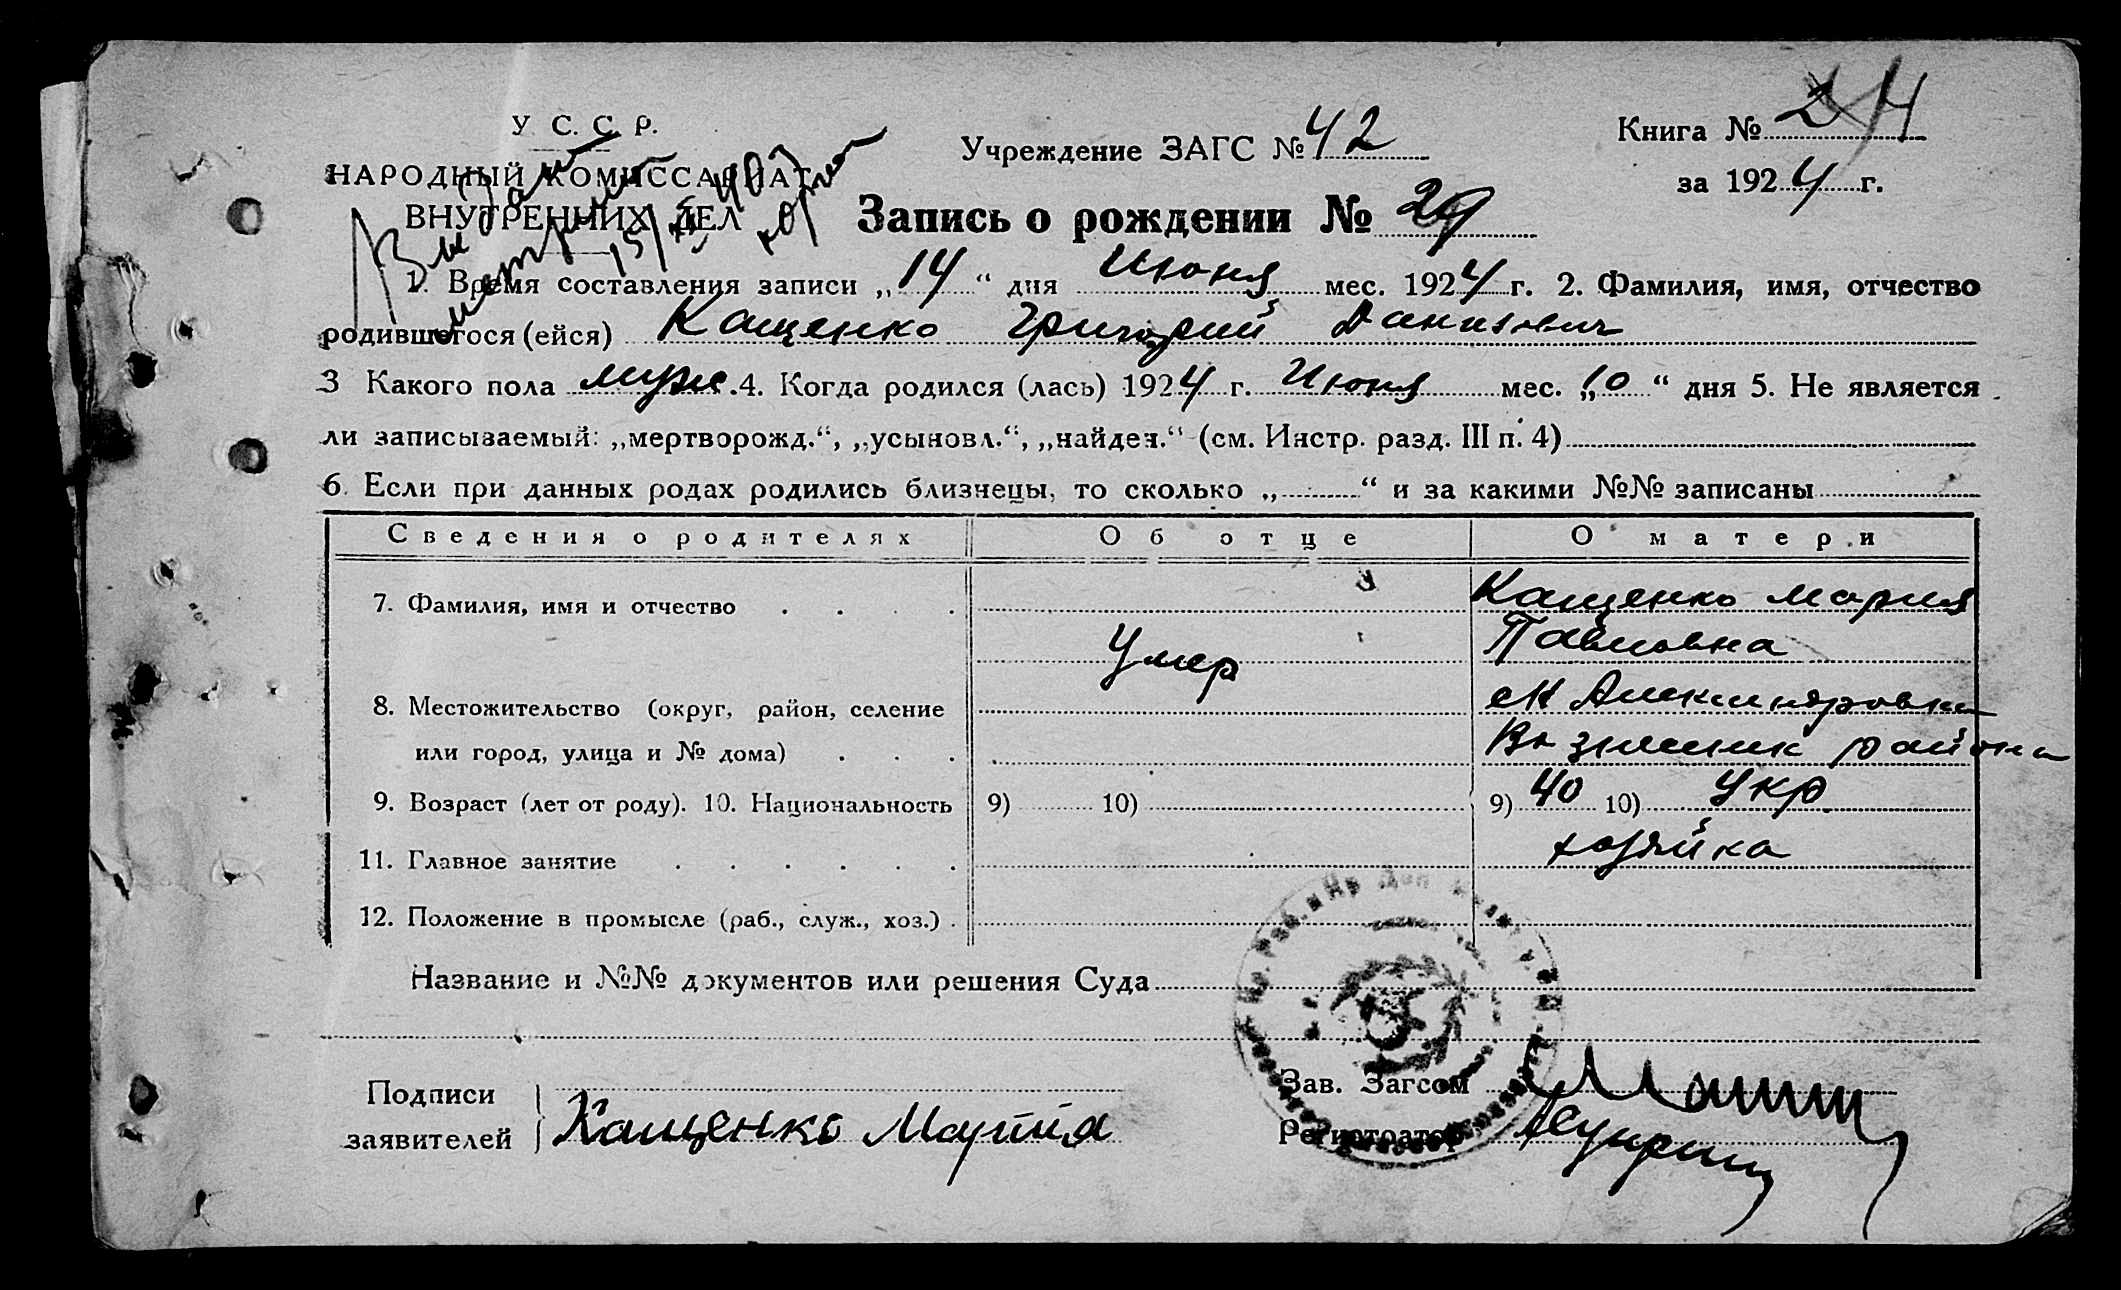 У. С. С. Р.
НАРОДНЫЙ КОМИССАРИАТ
ВНУТРЕННИХ ДЕЛ
Учреждение ЗАГС № 42
Книга № 24
за 1924 г.
Запись о рождении № 29
1. Время составления записи „14“ дня Июня мес. 1924 г. 2. Фамилия, имя, отчество
родившегося (ейся) Кащенко Григорий Данилович
3 Какого пола муж. 4. Когда родился (лась) 1924 г. Июня мес. „10“ дня 5. Не является
ли записываемый: „мертворожд.“, „усыновл.“, „найден.“ (см. Инстр. разд. III п. 4)
6. Если при данных родах родились близнецы, то сколько „ “ и за какими №№ записаны
Сведения о родителях Об отце О матери
7. Фамилия, имя и отчество Кащенко Мария
Умер Павловна
8. Местожительство (округ, район, селение
или город, улица и № дома) района
9. Возраст (лет от роду). 10. Национальность 9) 10) 9) 40 10) Укр.
11. Главное занятие хозяйка
12. Положение в промысле (раб., служ., хоз.)
Название и №№ документов или решения Суда
Подписи
заявителей Кащенко Мария
Зав. Загсом
Регистратор